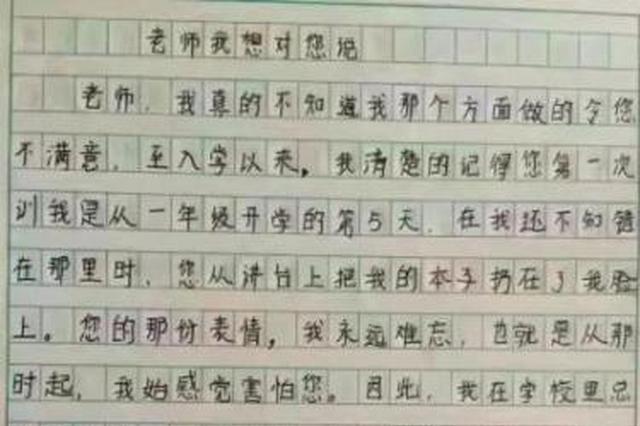 老师我想对您说
老师,我真的不知道我那个方面做的令您
不满意,至入学以来。我清楚的记得您第一次
训我是从一年级开学的第5天,在我还不知错
在那里时,您从讲台上把我的本子扔在了我脸
上。您的那份表情,我永远难忘,也就是从那
时起,我始感觉害怕您。因此,我在学校里总